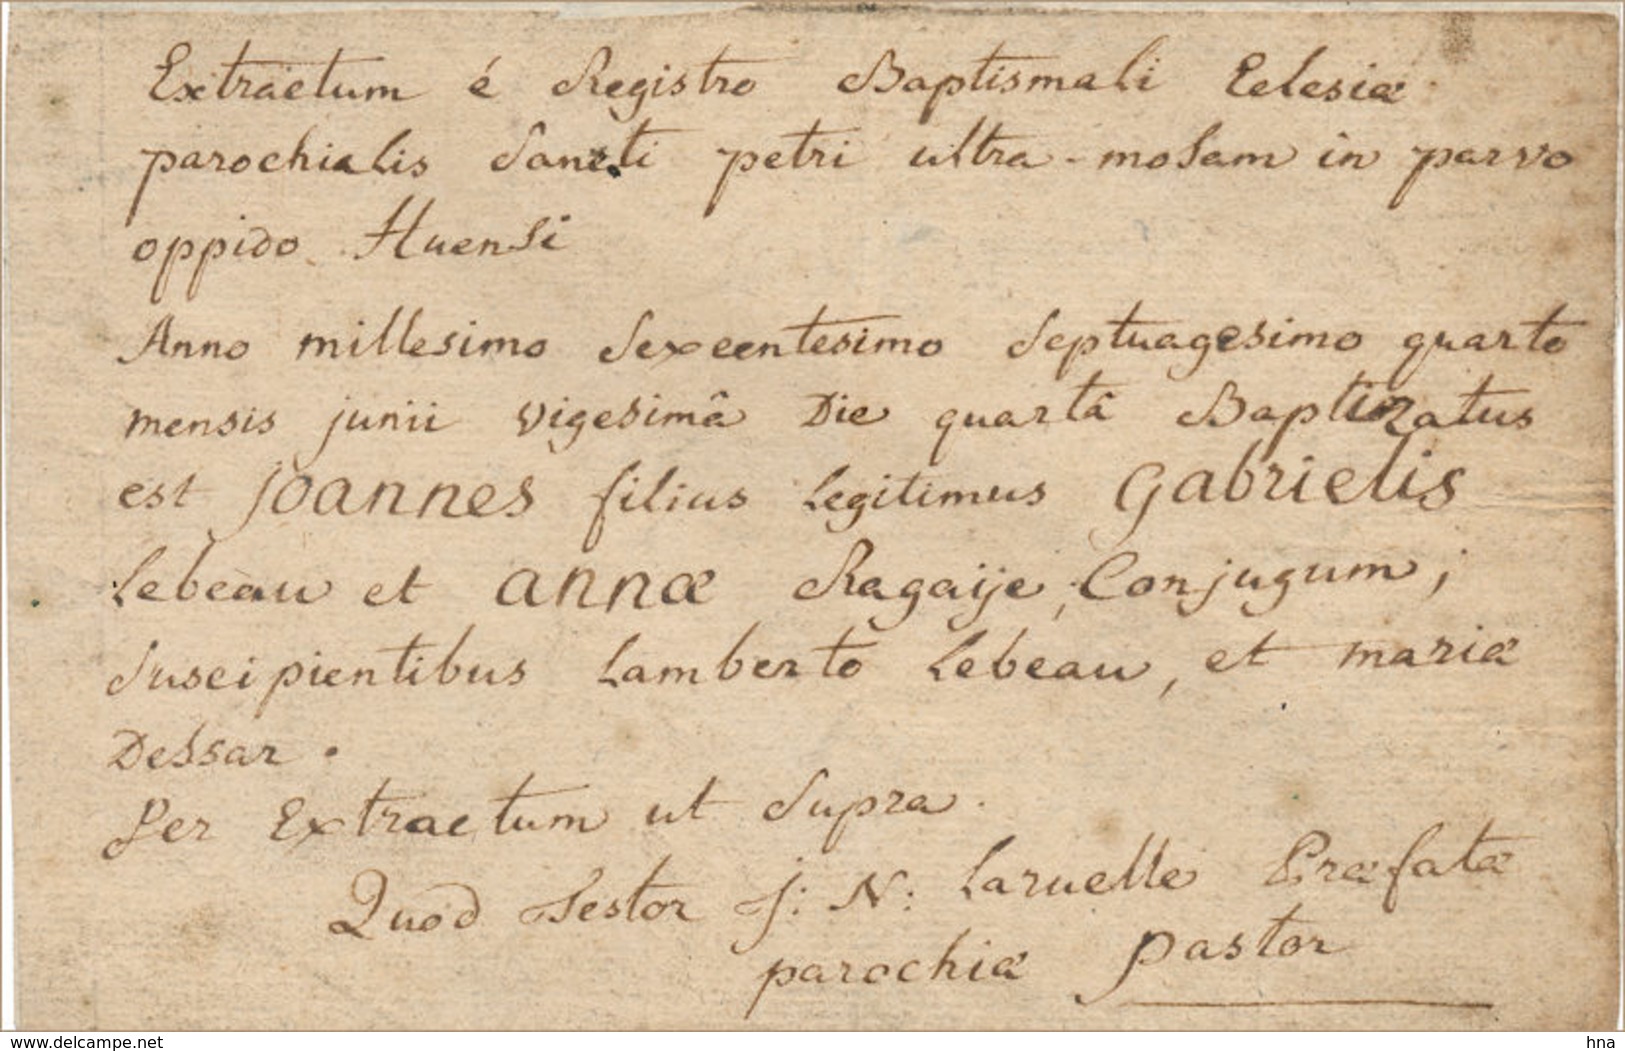 Extractum é Registro Baptismali Eclesiæ
parochialis Sancti petri ultra-mosam in parvo
oppido Huensi
Anno millesimo Sexcentesimo Septuagesimo quarto
mensis junii vigesimâ Die quartâ Baptizatus
est Joannes filius Legitimus Gabrielis
Lebeau et annæ Ragaije, Conjugum;
Suscipientibus Lamberto Lebeau, et mariæ
Dessar.
Per Extractum ut Supra.
Quod Testor J: N: Laruelle Præfatæ
parochiæ pastor
www.delcampe.net
hna